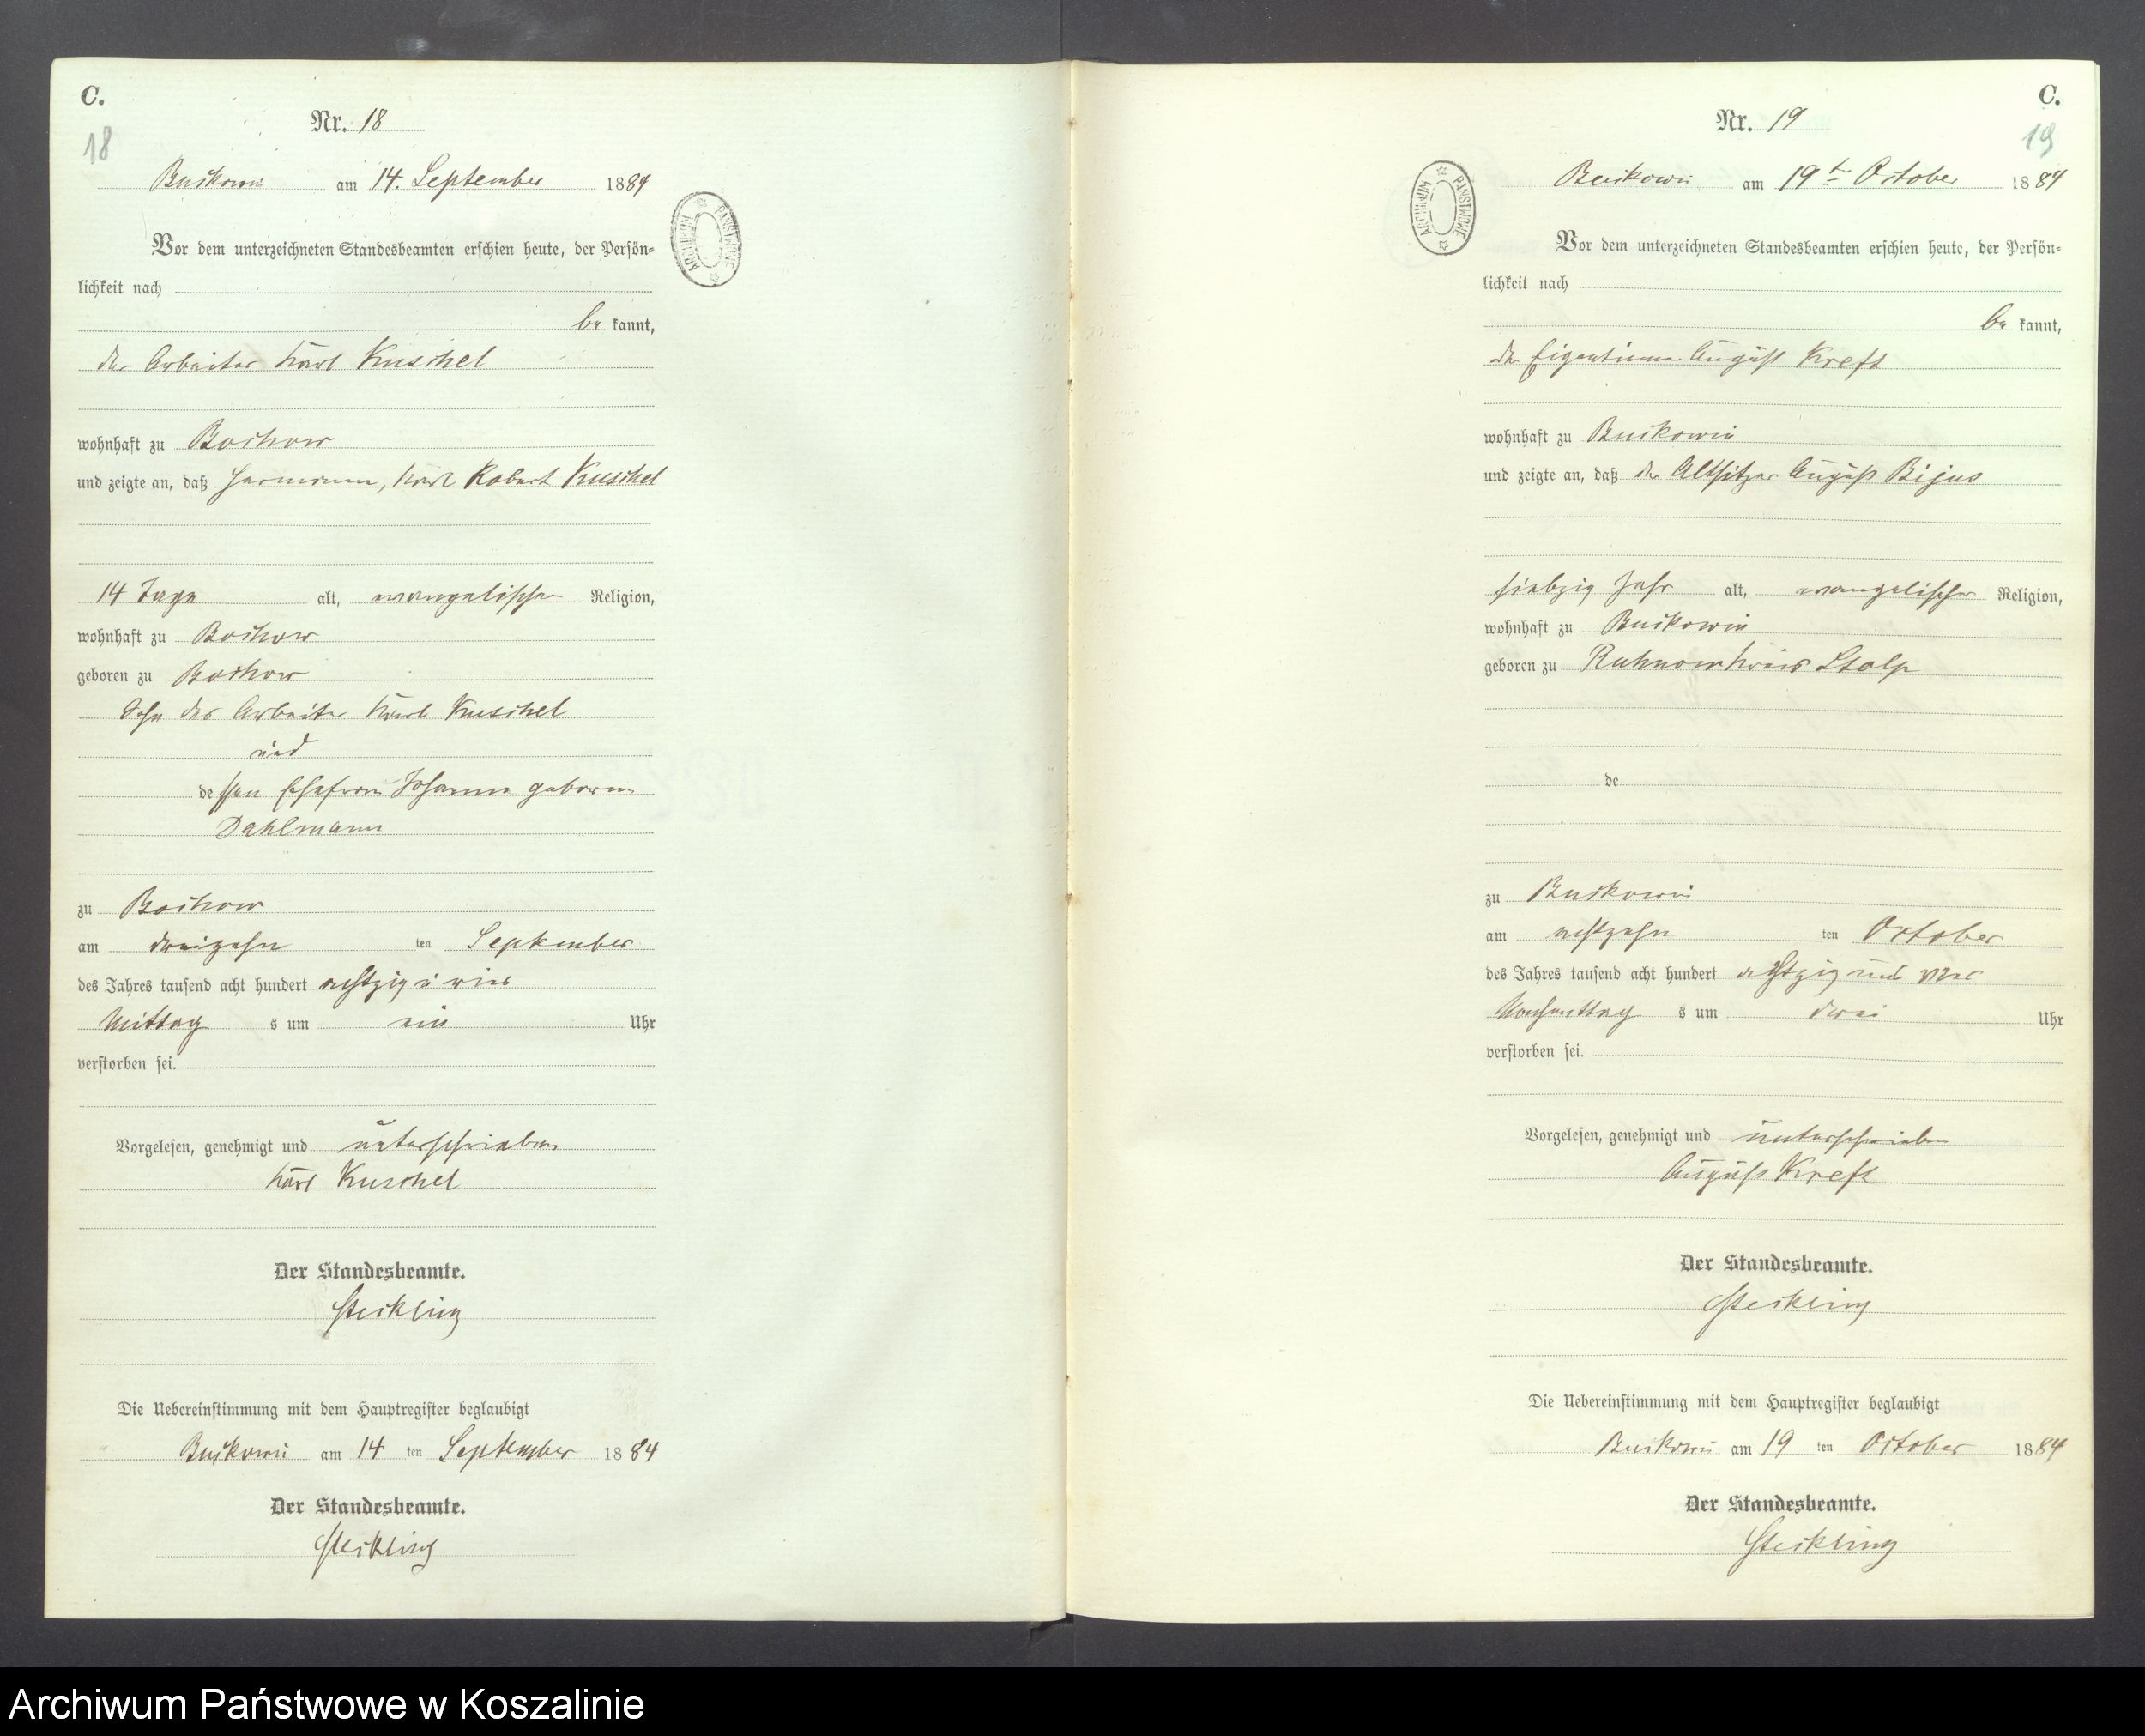 C.
18
Nr. 18
Buckowin am 14. September 1884
Vor dem unterzeichneten Standesbeamten erschien heute, der Persön-
lichkeit nach
be kannt,
der Arbeiter Karl Kuschel
wohnhaft zu Bochow
und zeigte an, daß Hermann, Karl Robert Kuschel
14 Tage alt, evangelischer Religion,
wohnhaft zu Bochow
geboren zu Bochow
Sohn des Arbeiter Karl Kuschel
und
dessen Ehefrau Johanne geborene
Dahlmann
zu Bochow
am dreizehn ten September
des Jahres tausend acht hundert achtzig u vier
Mittag s um ein Uhr
verstorben sei.
Vorgelesen, genehmigt und unterschrieben
Karl Kuschel
Der Standesbeamte.
Steckling
Die Uebereinstimmung mit dem Hauptregister beglaubigt
Buckowin am 14 ten September 1884
Der Standesbeamte.
Steckling
ARCHIWUM PAŃSTWOWE
C.
19
Nr. 19
Buckowin am 19ten October 1884
Vor dem unterzeichneten Standesbeamten erschien heute, der Persön-
lichkeit nach
be kannt,
der Eigentümer August Kreft
wohnhaft zu Buckowin
und zeigte an, daß der Altsitzer August Bijus
siebzig Jahr alt, evangelischer Religion,
wohnhaft zu Buckowin
geboren zu Kreis Stolp
de
zu Buckowin
am achtzehn ten October
des Jahres tausend acht hundert achtzig und vier
Nachmittag s um drei Uhr
verstorben sei.
Vorgelesen, genehmigt und unterschrieben
August Kreft
Der Standesbeamte.
Steckling
Die Uebereinstimmung mit dem Hauptregister beglaubigt
Buckowin am 19 ten October 1884
Der Standesbeamte.
Steckling
ARCHIWUM PAŃSTWOWE
Archiwum Państwowe w Koszalinie